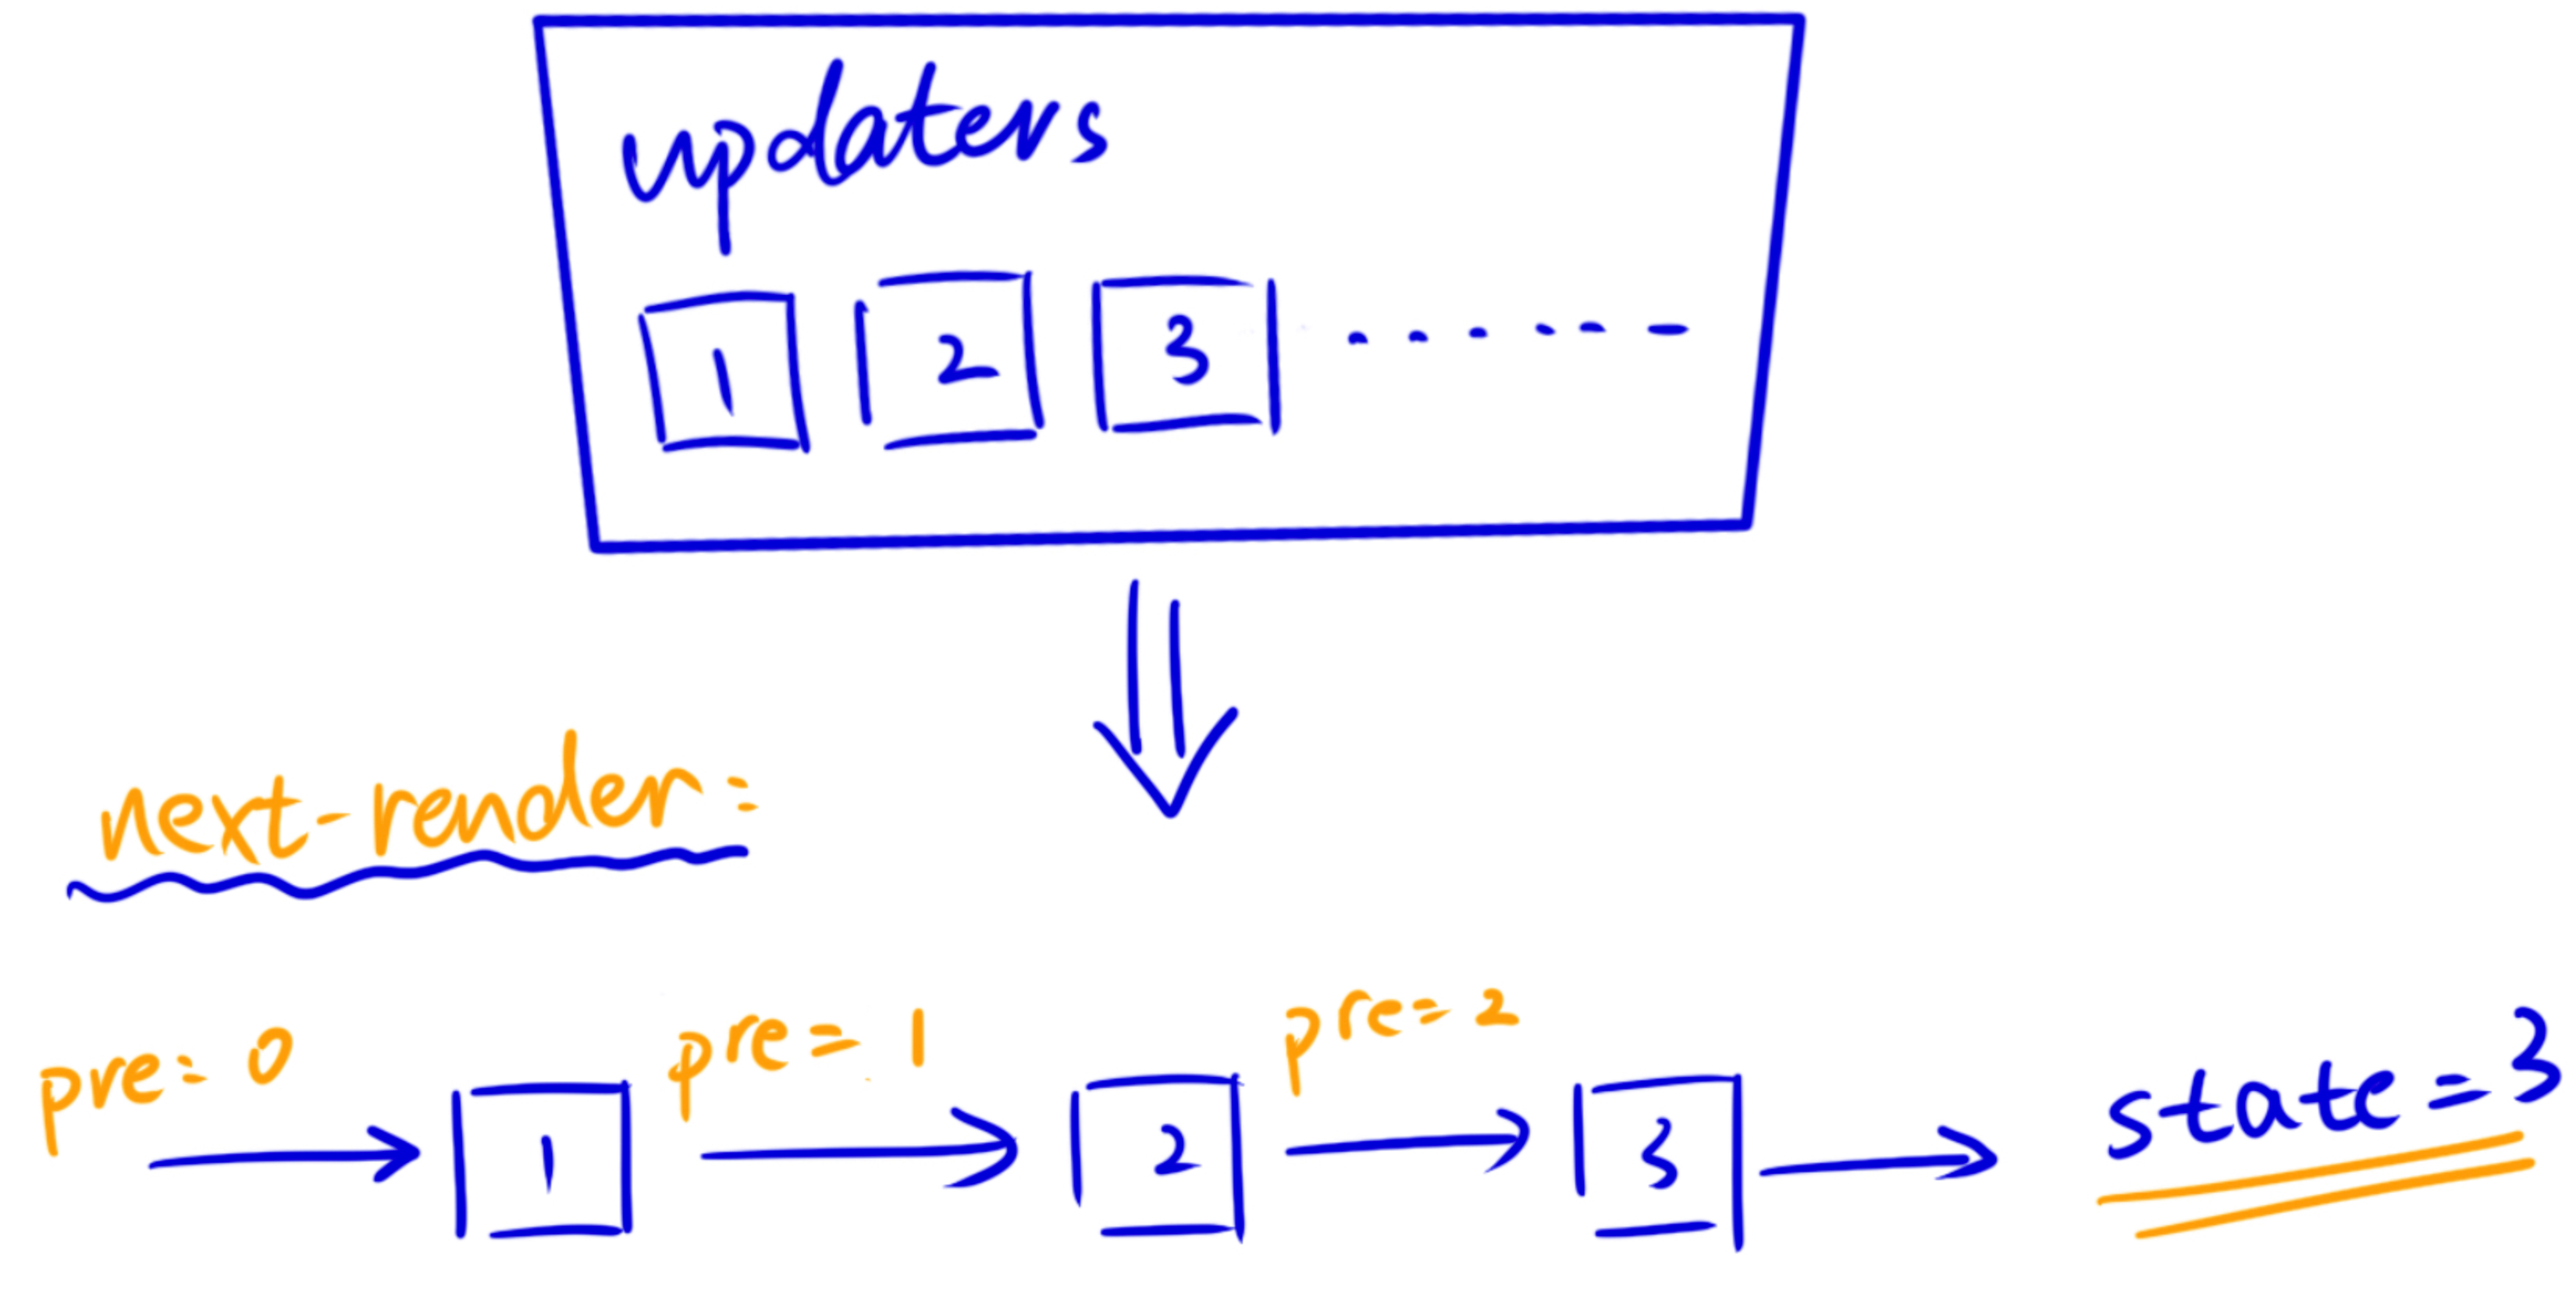 updaters
1 2 3 ......
next-render:
pre: 0 pre= 1 pre= 2
1 2 3 state=3